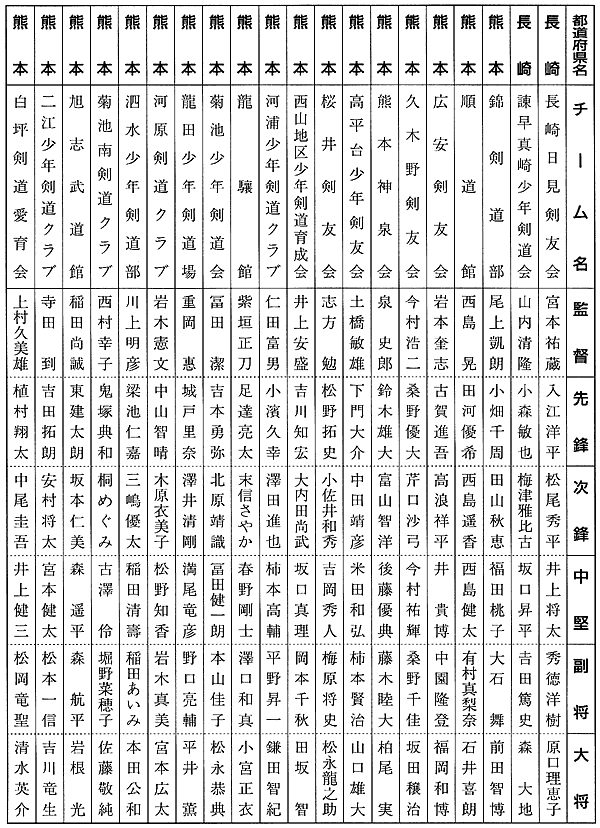 都道府県名 チーム名 監督 先鋒 次鋒 中堅 副将 大将
長崎 長崎日見剣友会 宮本祐蔵 入江洋平 松尾秀平 井上将太 秀徳洋樹 原口理恵子
長崎 諫早真崎少年剣道会 山内清隆 小森敏也 梅津雅比古 坂口昇平 吉田篤史 森大地
熊本 錦剣道部 尾上凱朗 小畑千周 田山秋恵 福田桃子 大石舞 前田智博
熊本 順道館 西島晃 田河優希 西島遥香 西島健太 有村真梨奈 石井喜朗
熊本 広安剣友会 岩本奎志 古賀進吾 高浪祥平 井貴博 中園隆登 福岡和博
熊本 久木野剣友会 今村浩二 桑野優大 芹口沙弓 今村祐輝 桑野千佳 坂田穣治
熊本 熊本神泉会 泉史郎 鈴木雄大 富山智洋 後藤優典 藤木睦大 柏尾実
熊本 高平台少年剣友会 土橋敏雄 下門大介 中田靖彦 米田和弘 柿本賢治 山口雄大
熊本 桜井剣友会 志方勉 松野拓史 小佐井和秀 吉岡秀人 梅原将史 松永龍之助
熊本 西山地区少年剣道育成会 井上安盛 吉川知宏 大内田尚武 坂口真理 岡本千秋 田坂智
熊本 河浦少年剣道クラブ 仁田富男 小濱久幸 澤田進也 柿本高輔 平野昇一 鎌田智紀
熊本 龍驤館 紫垣正刀 足達亮太 末信さやか 春野剛士 澤口和真 小宮正衣
熊本 菊池少年剣道会 冨田潔 吉本勇弥 北原靖識 冨田健一朗 本山佳子 松永恭典
熊本 龍田少年剣道場 重岡惠 城戸里奈 澤井清剛 満尾竜彦 野口亮輔 平井薫
熊本 河原剣道クラブ 岩木憲文 中山智晴 木原衣美子 松野知香 岩木真美 宮本広太
熊本 泗水少年剣道部 川上明彦 梁池仁嘉 三嶋優太 稲田清壽 稲田あいみ 本田公和
熊本 菊池南剣道クラブ 西村幸子 鬼塚典和 桐めぐみ 古澤伶 堀野菜穂子 佐藤敬純
熊本 旭志武道館 稲田尚誠 東建太朗 坂本仁美 森遥平 森航平 岩根光
熊本 二江少年剣道クラブ 寺田到 吉田拓朗 安村将太 宮本健太 松本一信 吉川竜生
熊本 白坪剣道愛育会 上村久美雄 植村翔太 中尾圭吾 井上健三 松岡竜聖 清水英介